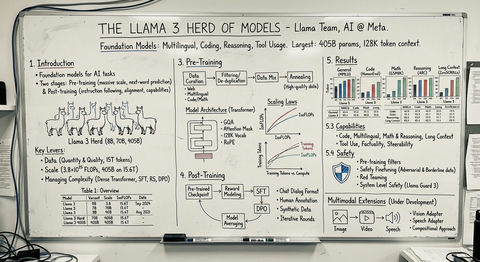 THE LLAMA 3 HERD OF MODELS - Llama Team, AI @ Meta.
Foundation Models: Multilingual, Coding, Reasoning, Tool Usage. Largest: 405B params, 128K token context.
1. Introduction
• Foundation models for AI tasks
• Two stages: Pre-training (massive scale, next-word prediction)
& Post-training (instruction following, alignment, capabilities)
Llama 3 Herd (8B, 70B, 405B)
Key Levers:
• Data (Quantity & Quality, 15T tokens)
• Scale (3.8×10²⁵ FLOPs, 405B on 15.6T)
• Managing Complexity (Dense Transformer, SFT, RS, DPO)
Table 1: Overview
Model
Variant
Scale
3. Pre-Training
Data Curation
Filtering/De-duplication
Data Mix
Annealing
• Web
• Multilingual
• Code/Math
(High-quality data)
Model Architecture (Transformer)
GQA
Attention Mask
128K Vocab
RoPE
Scaling Laws
Training Tokens
Training Tokens vs. Compute
4. Post-Training
Pre-trained Checkpoint
Reward Modeling
SFT
DPO
Model Averaging
• Chat Dialog Format
• Human Annotation
• Synthetic Data
• Iterative Rounds
5. Results
General (MMLU)
Code (HumanEval)
Math (GSM8K)
Reasoning (ARC)
Long Context
5.3 Capabilities
• Code, Multilingual, Math & Reasoning, Long Context
• Tool Use, Factuality, Steerability
5.4 Safety
• Pre-training filters
• Safety Finetuning (Adversarial & Borderline data)
• Red Teaming
• System Level Safety (Llama Guard 3)
Multimodal Extensions (Under Development)
Image
Video
Speech
• Vision Adapter
• Speech Adapter
• Compositional Approach